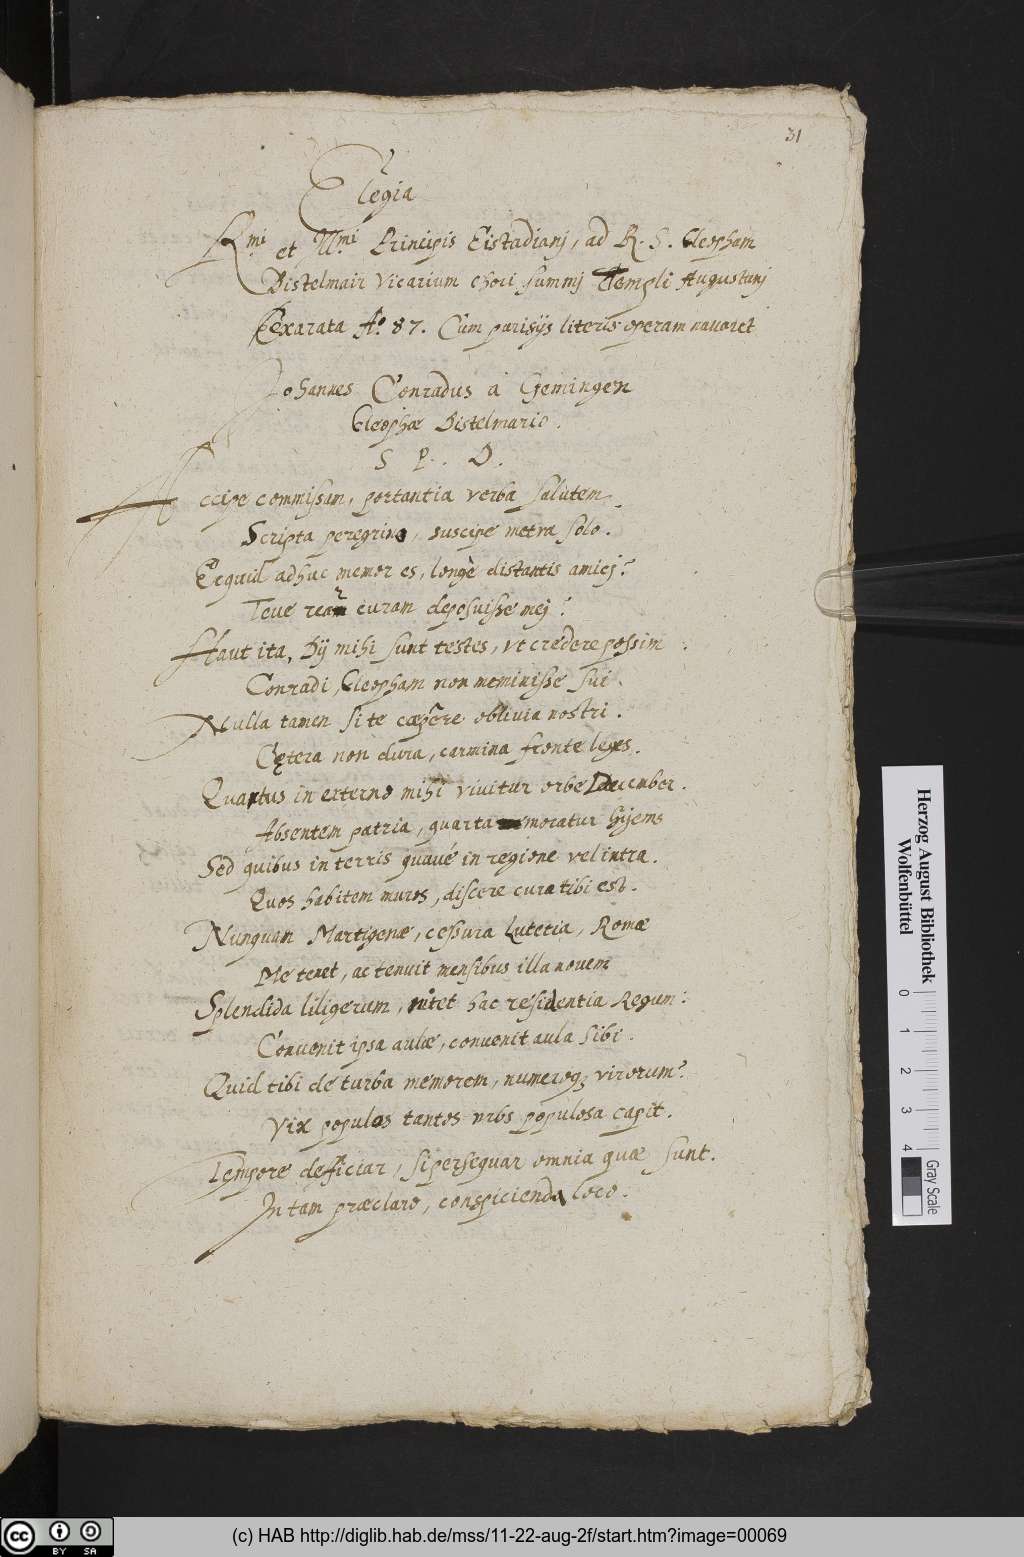 31
Elegia
R.mi et Ill.mi Principis Eistadianj, ad R. S. Cleopham
Distelmair Vicarium chori summj Templi Augustanj
Exarata A.o 87. Cum parisijs literis operam navaret
Johannes Conradus à Gemingen
Cleophæ Distelmario.
S. P. D.
Accipe commissam, portantia verba salutem,
Scripta peregrino, suscipe metra solo.
Ecquid adhuc memor es, longè distantis amicj?
Teve rear curam deposuisse mej?
Haut ita, Dij mihi sunt testes, vt credere possim
Conradi, Cleopham non meminisse sui.
Nulla tamen si te cæpere oblivia nostri.
Cętera non dura, carmina fronte leges.
Quartus in externo mihi vivitur orbe December.
Absentem patria, quarta moratur hijems
Sed quibus in terris quavé in regione vel intra.
Quos habitem muros, discere cura tibi est.
Nunquam Martigenæ, cessura Lutetia, Romæ
Me tenet, ac tenuit mensibus illa novem
Splendida liligerum, nitet hac residentia Regum:
Convenit ipsa aulæ, convenit aula sibi.
Quid tibi de turba memorem, numeroq; virorum?
Vix populos tantos urbs populosa capit.
Tempore defficiar, si persequar omnia quæ sunt.
In tam præclaro, conspicienda loco.
Herzog August Bibliothek
Wolfenbüttel
0 1 2 3 4
Gray Scale
cc BY SA
(c) HAB http://diglib.hab.de/mss/11-22-aug-2f/start.htm?image=00069